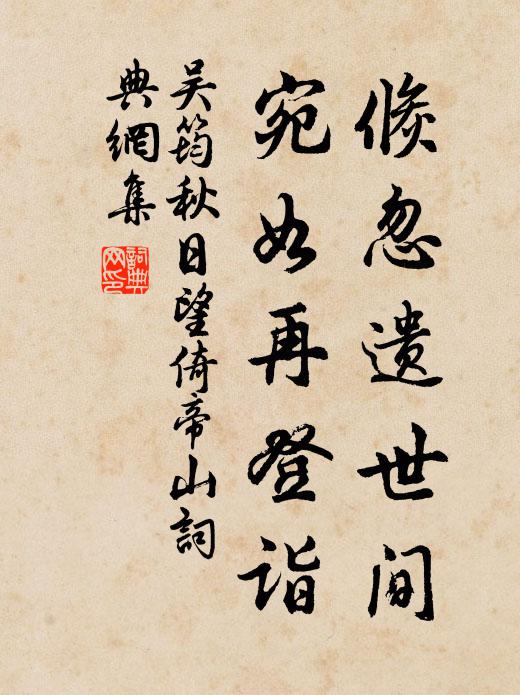 倏忽遗世间
宛如再登诣
吴筠秋日望倚帝山词
典网集
词典
网印